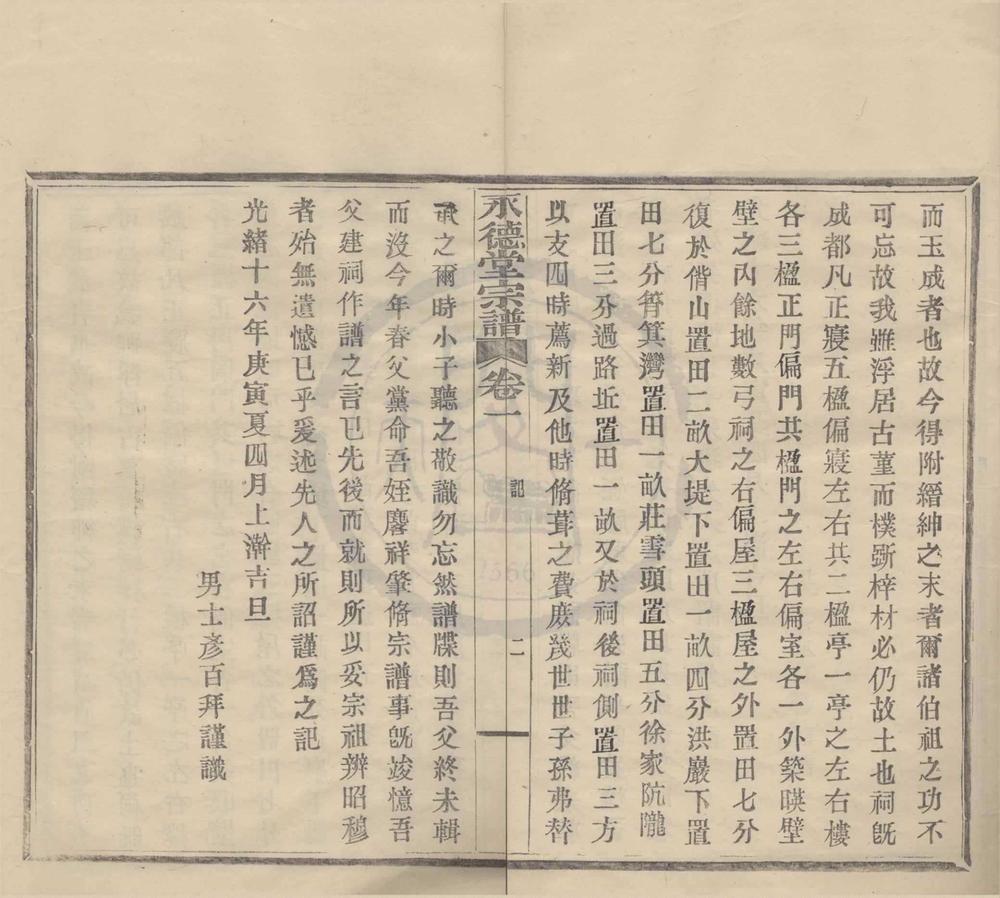 而玉成者也故今得附縉紳之末者爾諸伯祖之功不
可忘故我雖浮居古菫而樸斲梓材必仍故土也祠旣
成都凡正寢五楹偏寢左右共二楹亭一亭之左右樓
各三楹正門偏門共楹門之左右偏室各一外築暎壁
壁之內餘地數弓祠之右偏屋三楹屋之外置田七分
復於偕山置田二畝大堤下置田一畝四分洪巖下置
田七分箁箕灣置田一畝莊雪頭置田五分徐家阬隴
置田三分過路坵置田一畝又於祠後祠側置田三方
以支四時薦新及他時脩葺之費庶幾世世子孫弗替
永德堂宗譜 卷一 記 二
承之爾時小子聽之敬識勿忘然譜牒則吾父終未輯
而沒今年春父黨命吾姪麐祥肇脩宗譜事旣竣憶吾
父建祠作譜之言已先後而就則所以妥宗祖辨昭穆
者始無遺憾已乎爰述先人之所詔謹爲之記
光緒十六年庚寅夏四月上澣吉旦
男士彥百拜謹識